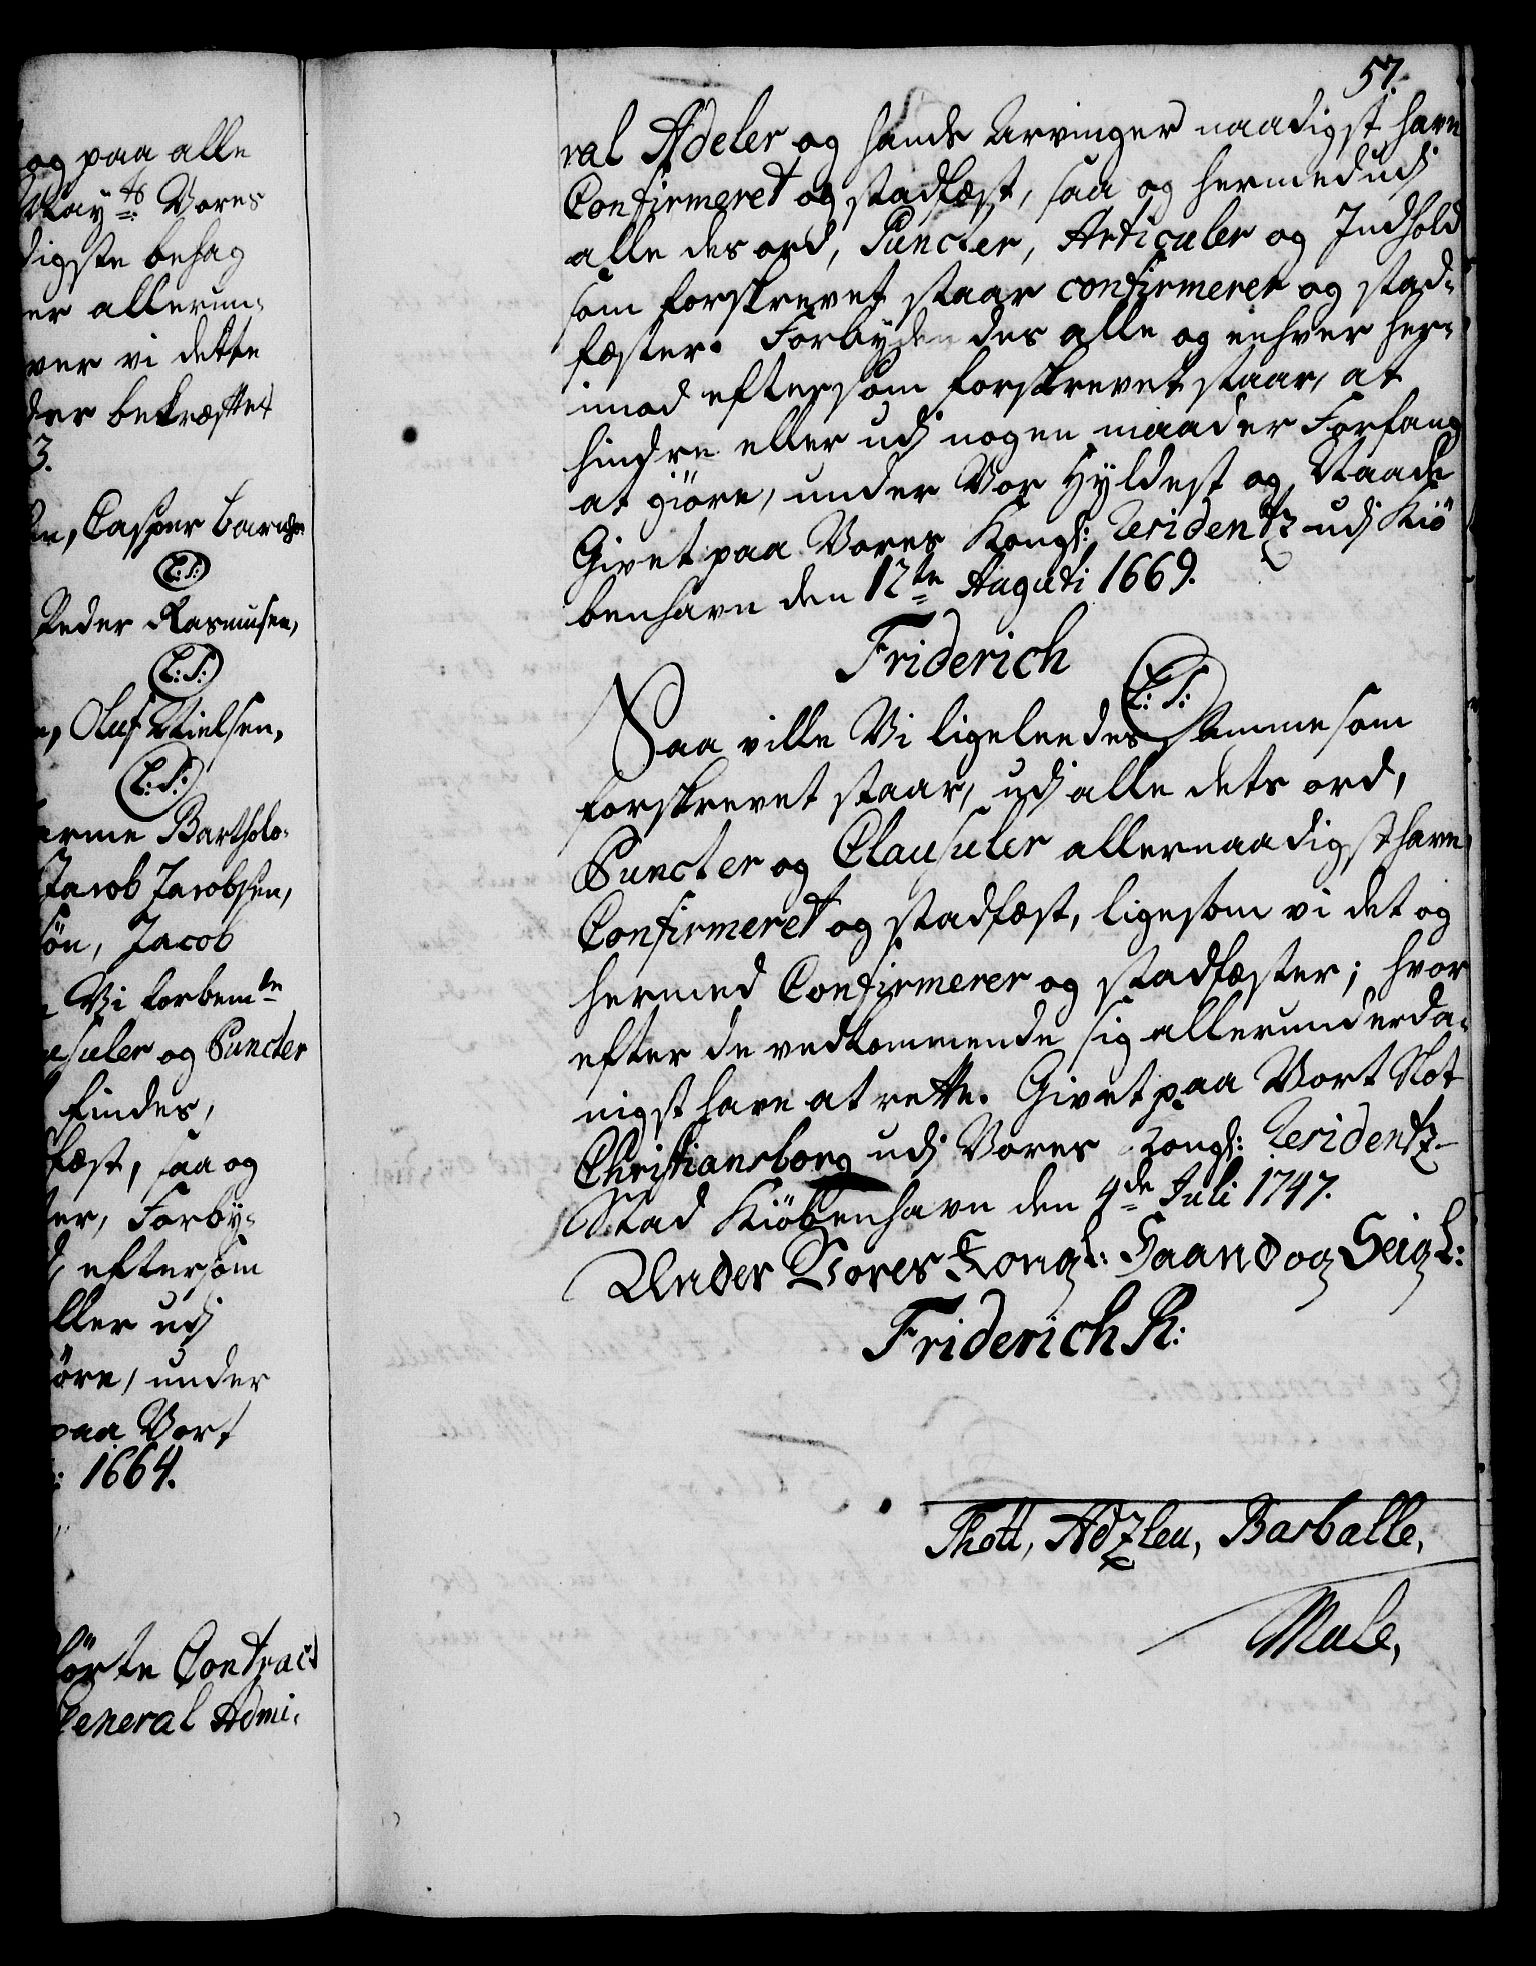 og paa alle
May ts: Vores
digste behag
er allerun-
ver vi dette
der bekræftet
3.
Casper
L: S:
Peder Rasmusen,
L: S:
Oluf Nielsen,
L: S:
erme Bartholo-
Jacob Jacobsen,
søn, Jacob
Vi forbem te
suler og Puncter
findes,
fæst, saa og
ter, Forby-
eftersom
ller udj
iøre, under
paa Vort
: 1664.
førte Contract
General Admi-
57.
ral Adeler og hands Arvinger naadigst have
Confirmeret og stadfæst, saa og hermed udj
alle des ord, Puncter, Articuler og Indhold
som forskrevet staar confirmerer og stad-
fæster. Forbydendes alle og enhver her-
imod eftersom forskrevet staar, at
hindre eller udj nogen maader Forfang
at giøre, under Vor Hyldest og Naade
Givet paa Vores Kongl: Residentz udj Kiö
benhavn den 12te Augusti 1669.
Friderich
L: S:
Saa ville Vi ligeleedes samme som
forskrevet staar, udj alle dets ord,
Puncter og Clausuler allernaadigst have
Confirmeret og stadfæst, ligesom vi det og
hermed Confirmerer og stadfæster; hvor
efter de vedkommende sig allerunderda-
nigst have at rette. Givet paa Vort Slot
Christiansborg udj Vores Kongl: Residentz-
Stad Kiöbenhavn den 4de Juli 1747.
Under Vores Kongl: Haand og Seigl:
Friderich R:
Thott, Barballe,
Male,